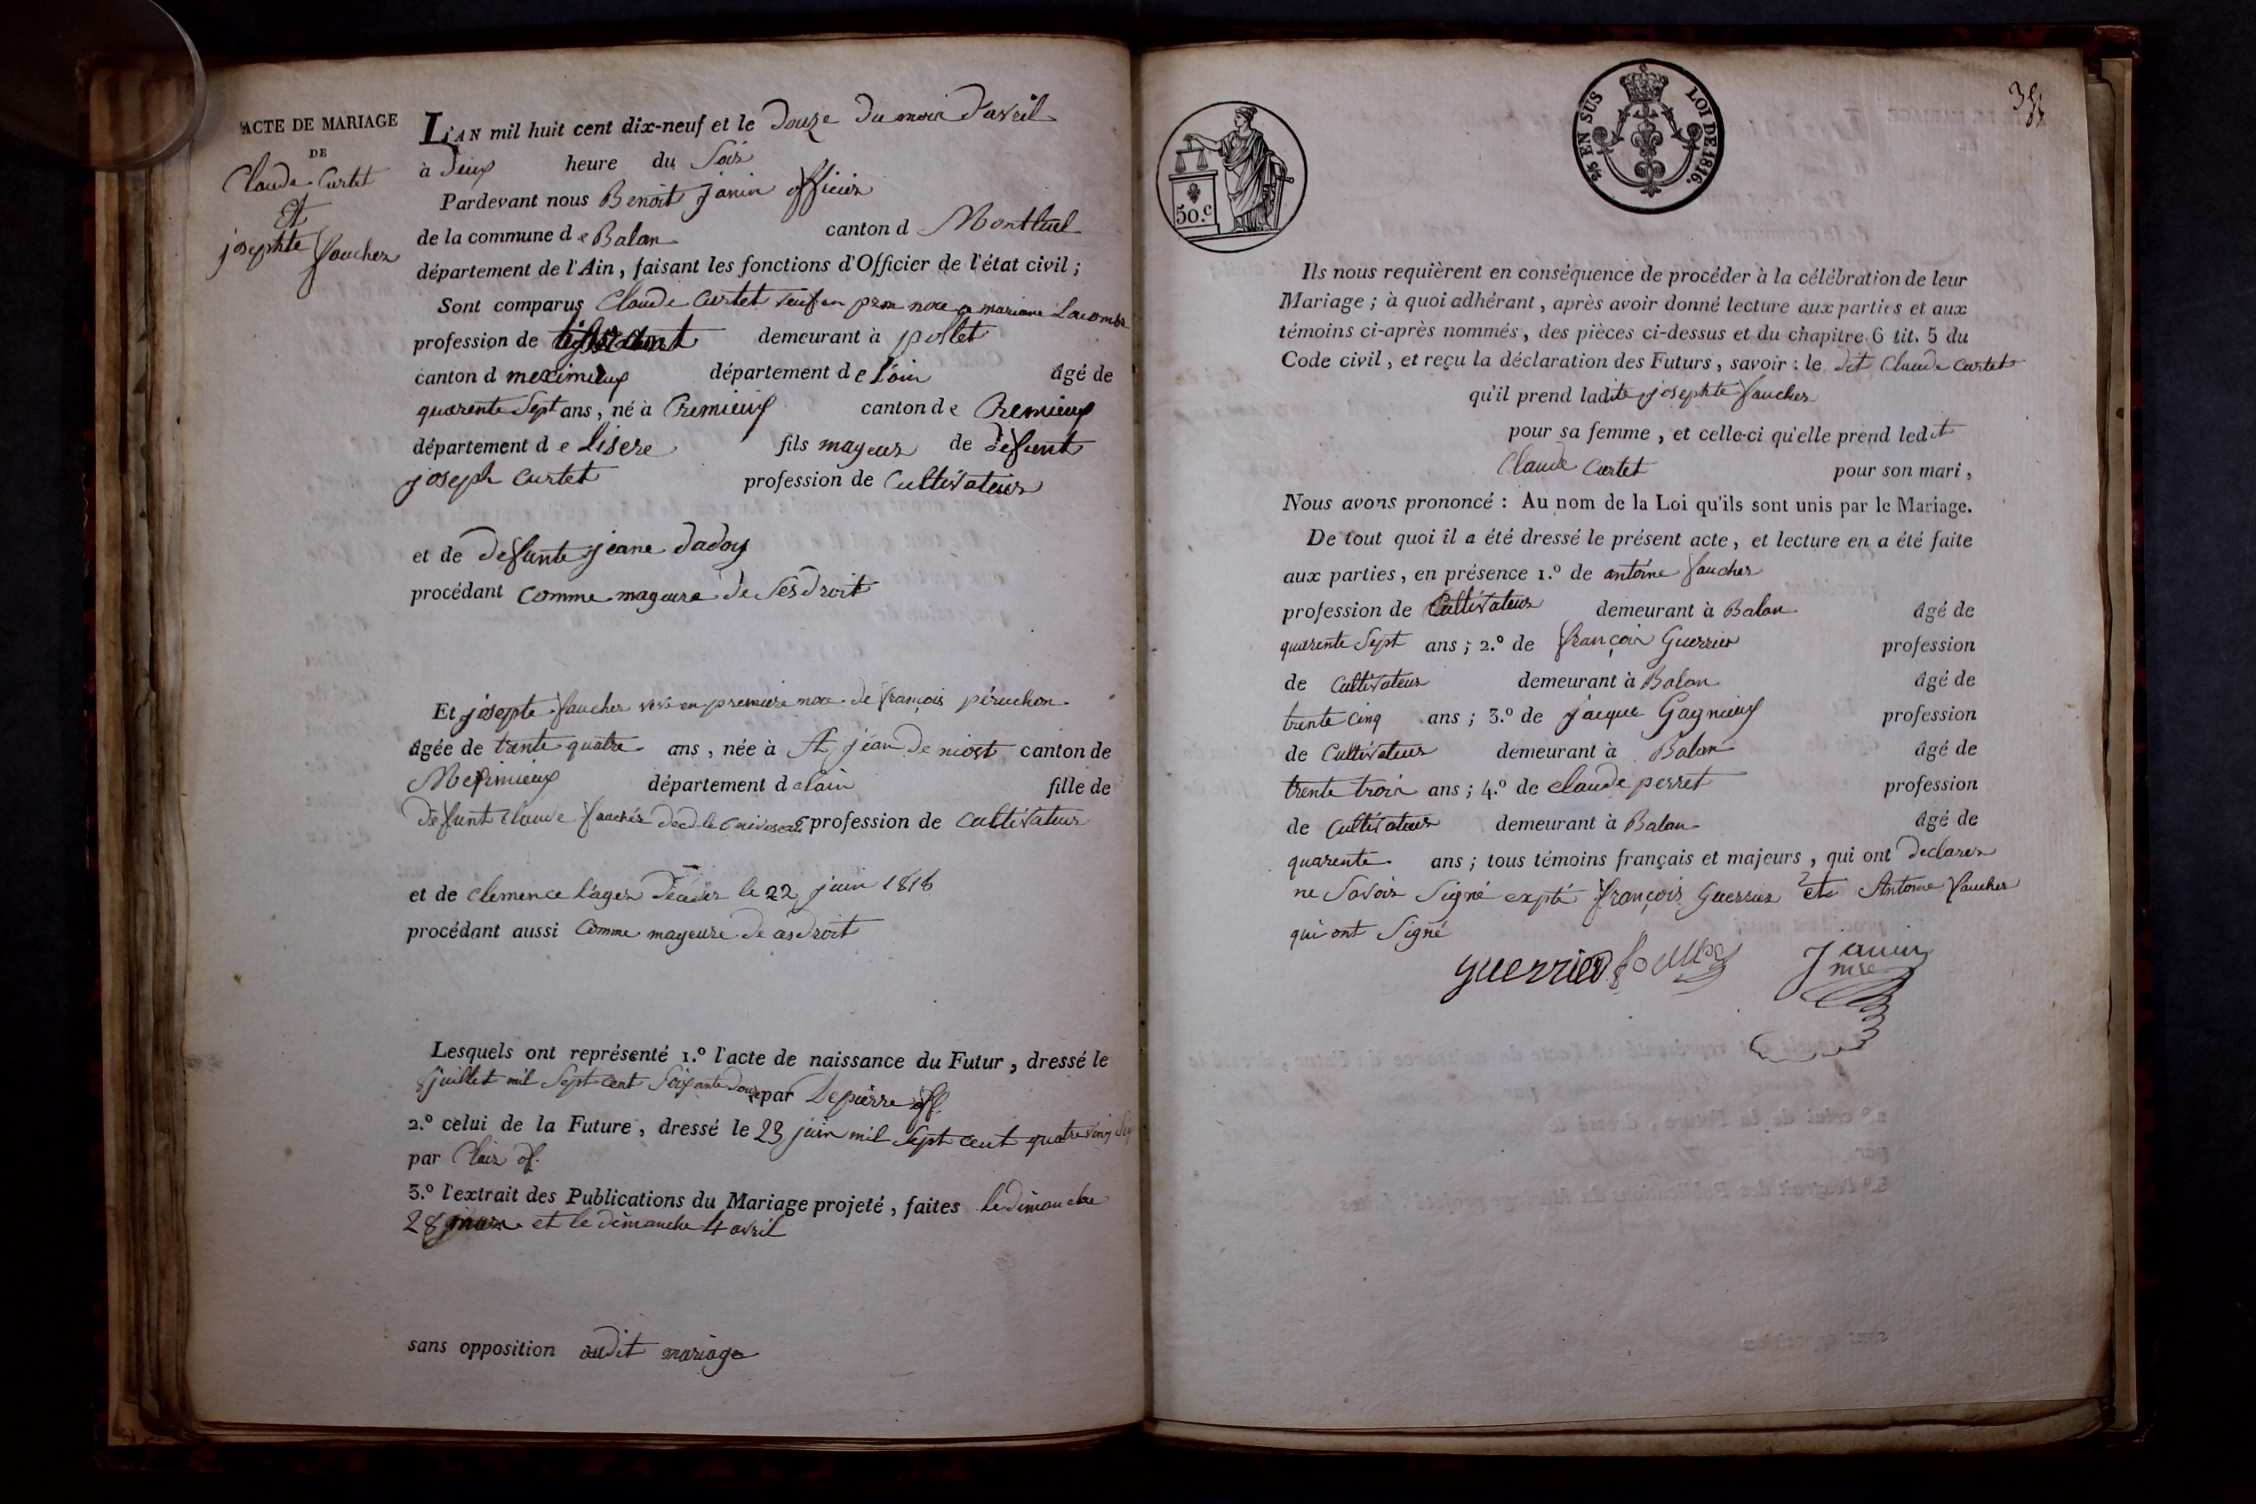 ACTE DE MARIAGE
DE
Claude Curtet
Et
josephte faucher
L'AN mil huit cent dix-neuf et le douze du mois d'avril
à deux heure du Soir
Pardevant nous Benoit janin officier
de la commune de Balan canton d Montluel
département de l'Ain, faisant les fonctions d'Officier de l'état civil;
Sont comparus Claude Curtet veuf en noce mariane Lacombe
profession de demeurant à pollet
canton d meximieux département de l'ain âgé de
quarente Sept ans, né à Cremieux canton de Cremieux
département de Lisere fils mayeur de defunt
joseph curtet profession de Cultivateur
et de defunte jeane dadoy
procédant comme mayeure de Ses droit
Et josepte faucher veve en premiere noce de françois péruchon
âgée de trente quatre ans, née à St jean de niost canton de
Meximieux département d elain fille de
défunt Claude faucher profession de cultivateur
et de clémence Lager décedér le 22 juin 1818
procédant aussi Comme mayeure de as droit
Lesquels ont représenté 1.º l'acte de naissance du Futur, dressé le
8 juillet mil Sept cent Soixante douze par Depierre off.
2.º celui de la Future, dressé le 23 juin mil Sept cent quatre ving
par Clair of.
3.º l'extrait des Publications du Mariage projeté, faites le dimanche
28 mars et le dimanche 4 avril
sans opposition audit mariage
50.c
EN SUS LOI DE 1816.
Ils nous requièrent en conséquence de procéder à la célébration de leur
Mariage; à quoi adhérant, après avoir donné lecture aux parties et aux
témoins ci-après nommés, des pièces ci-dessus et du chapitre 6 tit. 5 du
Code civil, et reçu la déclaration des Futurs, savoir: le dit Claude Curtet
qu'il prend ladite josephte faucher
pour sa femme, et celle-ci qu'elle prend ledit
Claude Curtet pour son mari,
Nous avons prononcé: Au nom de la Loi qu'ils sont unis par le Mariage.
De tout quoi il a été dressé le présent acte, et lecture en a été faite
aux parties, en présence 1.º de antoine faucher
profession de Cultivateur demeurant à Balan âgé de
quarente Sept ans; 2.º de françois Guerrier profession
de Cultivateur demeurant à Balan âgé de
trente cinq ans; 3.º de jacque Gagnieux profession
de Cultivateur demeurant à Balan âgé de
trente trois ans; 4.º de claude perret profession
de Cultivateur demeurant à Balan âgé de
quarente ans; tous témoins français et majeurs, qui ont declarer
ne Savoir Signé expté françois Guerrier et Antoine faucher
qui ont Signé
guerrier Janin
mre